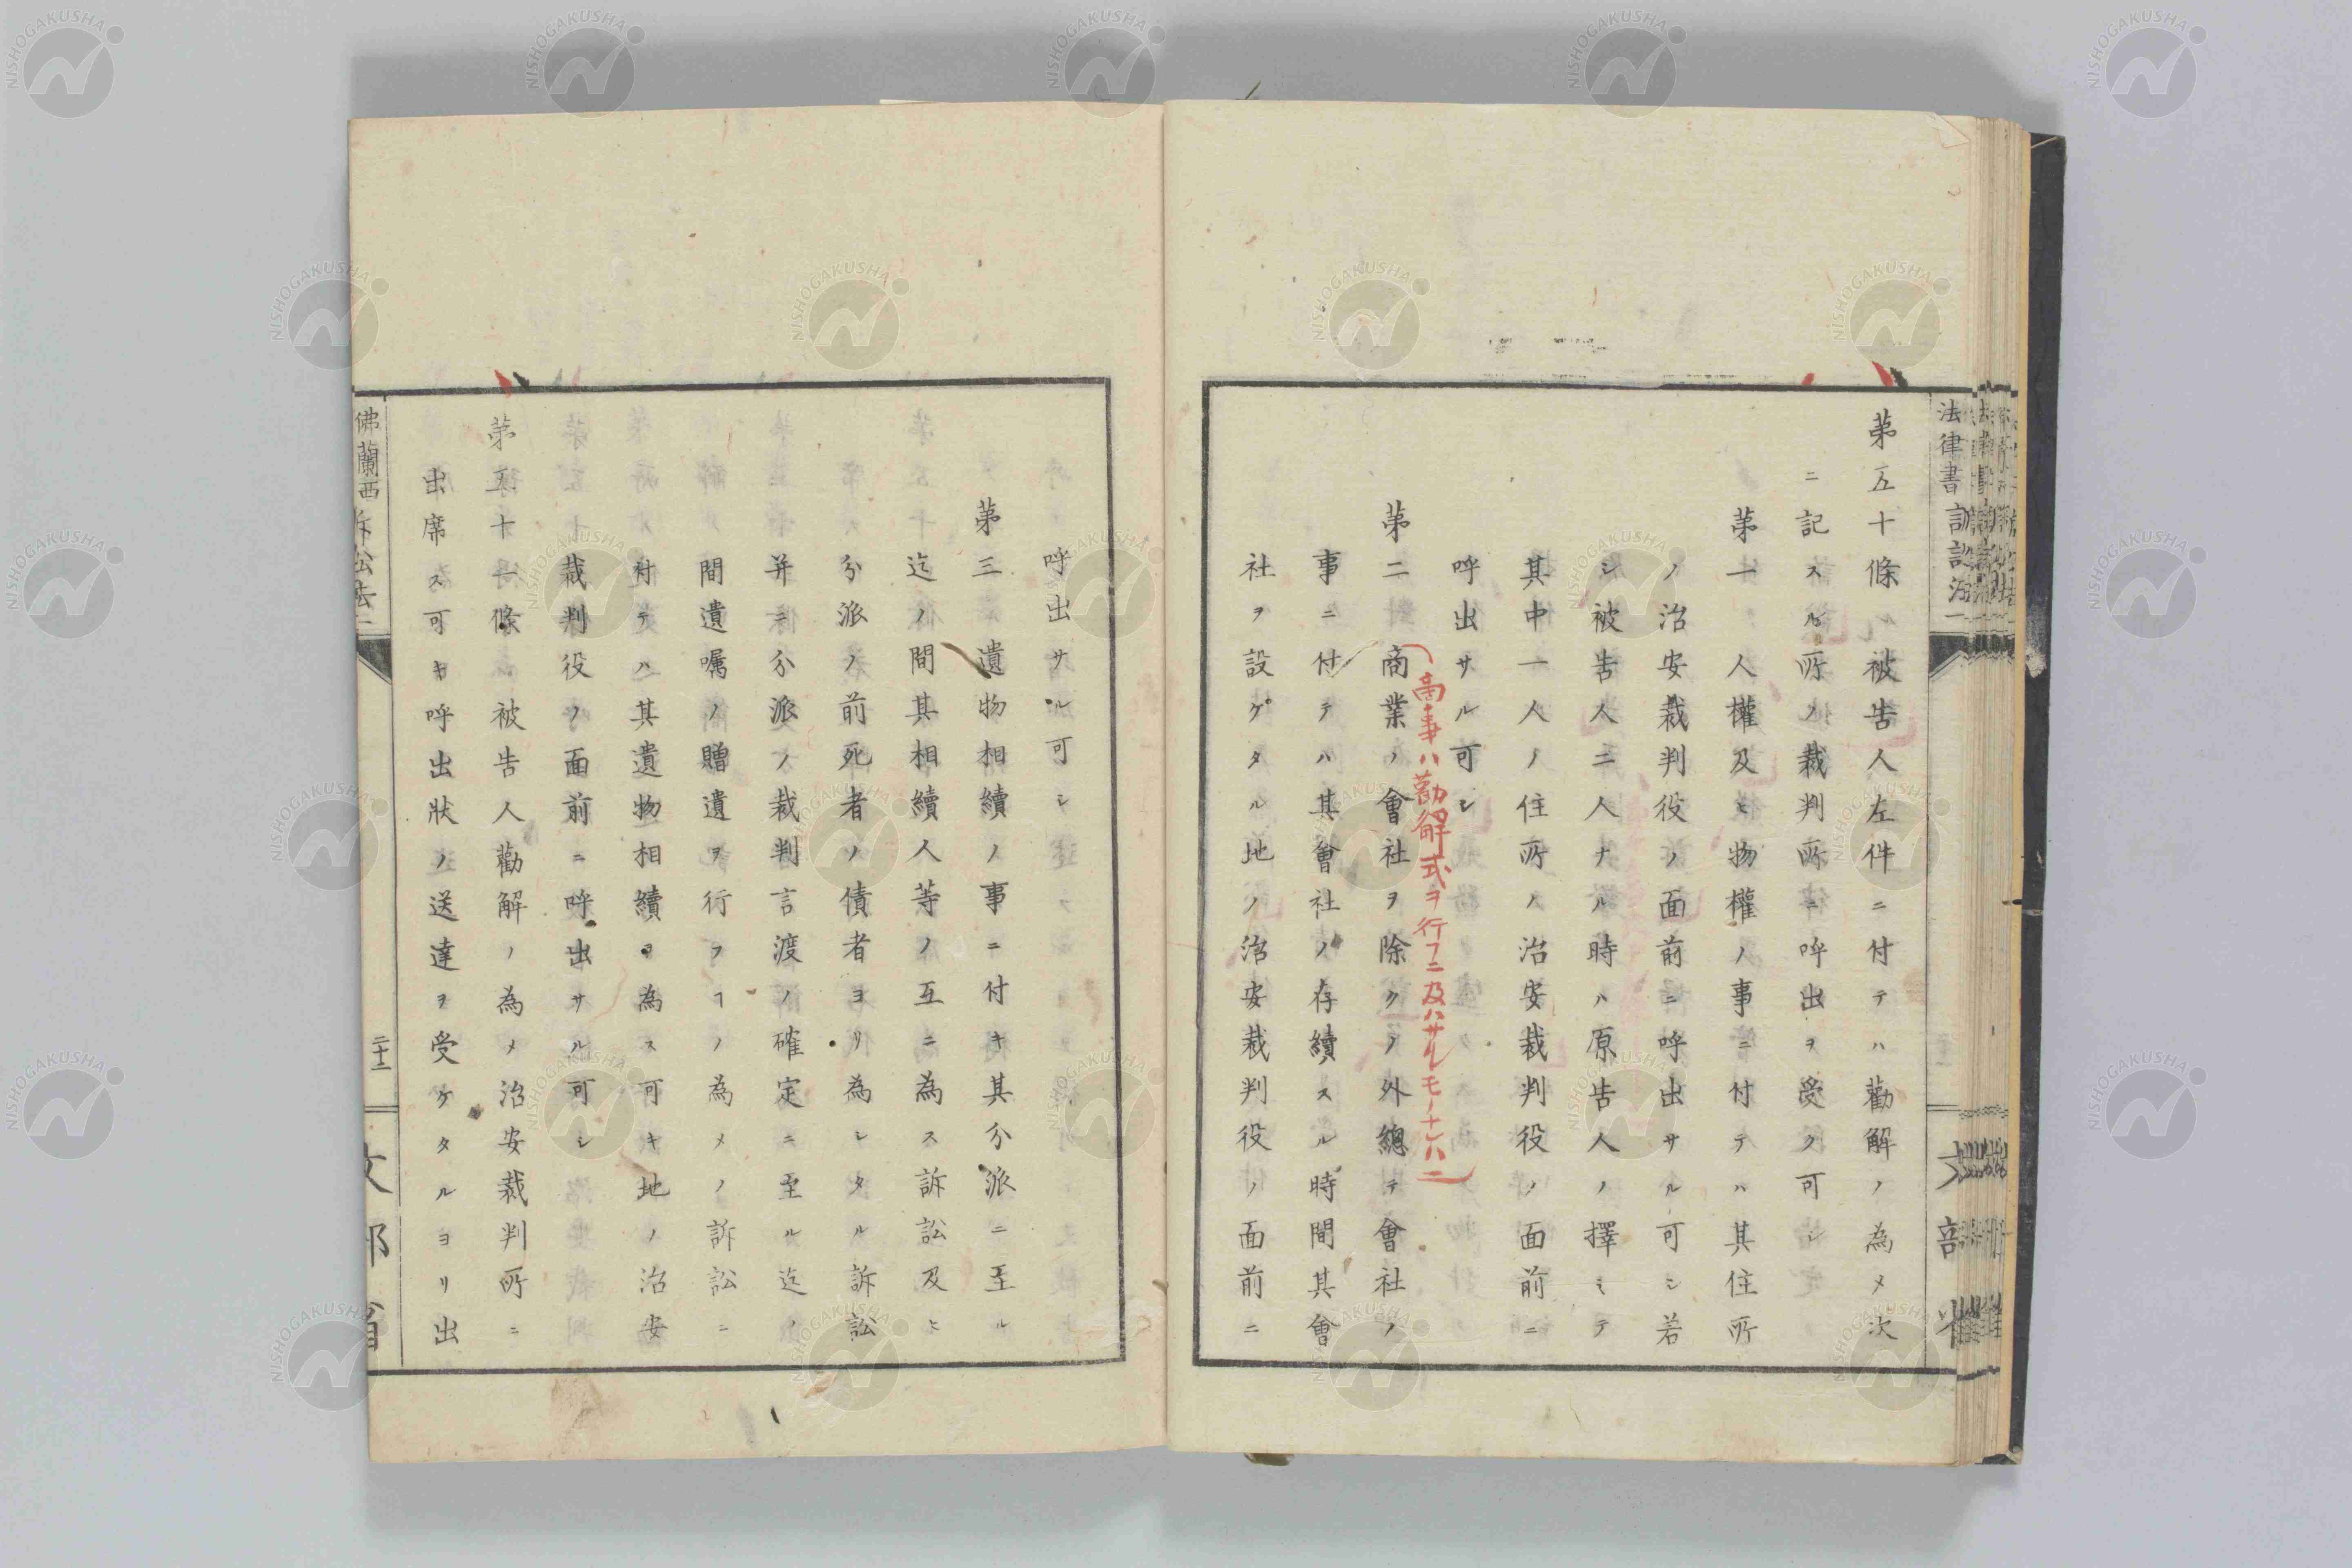 第五十條 被告人左件ニ付テハ勸解ノ為メ次
ニ記スル所ノ裁判所ニ呼出ヲ受ク可シ
第一 人權及ヒ物權ノ事ニ付テハ其住所
ノ治安裁判役ノ面前ニ呼出サル可シ若
シ被告人二人ナル時ハ原告人ノ擇ミテ
其中一人ノ住所ノ治安裁判役ノ面前ニ
呼出サル可シ
商事ハ勸解式ヲ行フニ及ハサルモノナレハニ
第二 商業ノ會社ヲ除クノ外總テ會社ノ
事ニ付テハ其會社ノ存續スル時間其會
社ヲ設ケタル地ノ治安裁判役ノ面前ニ
呼出サル可シ
第三 遺物相續ノ事ニ付キ其分派ニ至ル
迄ノ間其相續人等ノ互ニ為ス訴訟及ヒ
分派ノ前死者ノ債者ヨリ為シタル訴訟
并ニ分派ノ裁判言渡ノ確定ニ至ル迄ノ
間遺囑ノ贈遺ヲ行フヿノ為メノ訴訟ニ
付テハ其遺物相續ヲ為ス可キ地ノ治安
裁判役ノ面前ニ呼出サル可シ
第五十一條 被告人勸解ノ為メ治安裁判所ニ
出席ス可キ呼出狀ノ送達ヲ受ケタルヨリ出
佛蘭西 訴訟法一
二十二
文部省
法律書 訴訟法一
文部省
NISHOGAKUSHA